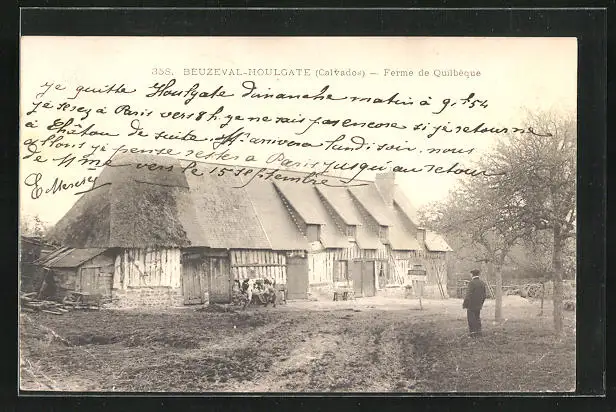 358. BEUZEVAL-HOULGATE (Calvados) — Ferme de Quilbèque
Je quitte Houlgate Dimanche matin à 9h54
je serez à Paris vers 8h je ne sais pas encore si je retourne
à Château de suite. Mr arrivera lundi soir, nous
allons je pense rester à Paris jusqu'au retour
de Mme vers le 15 septembre
E Mereset